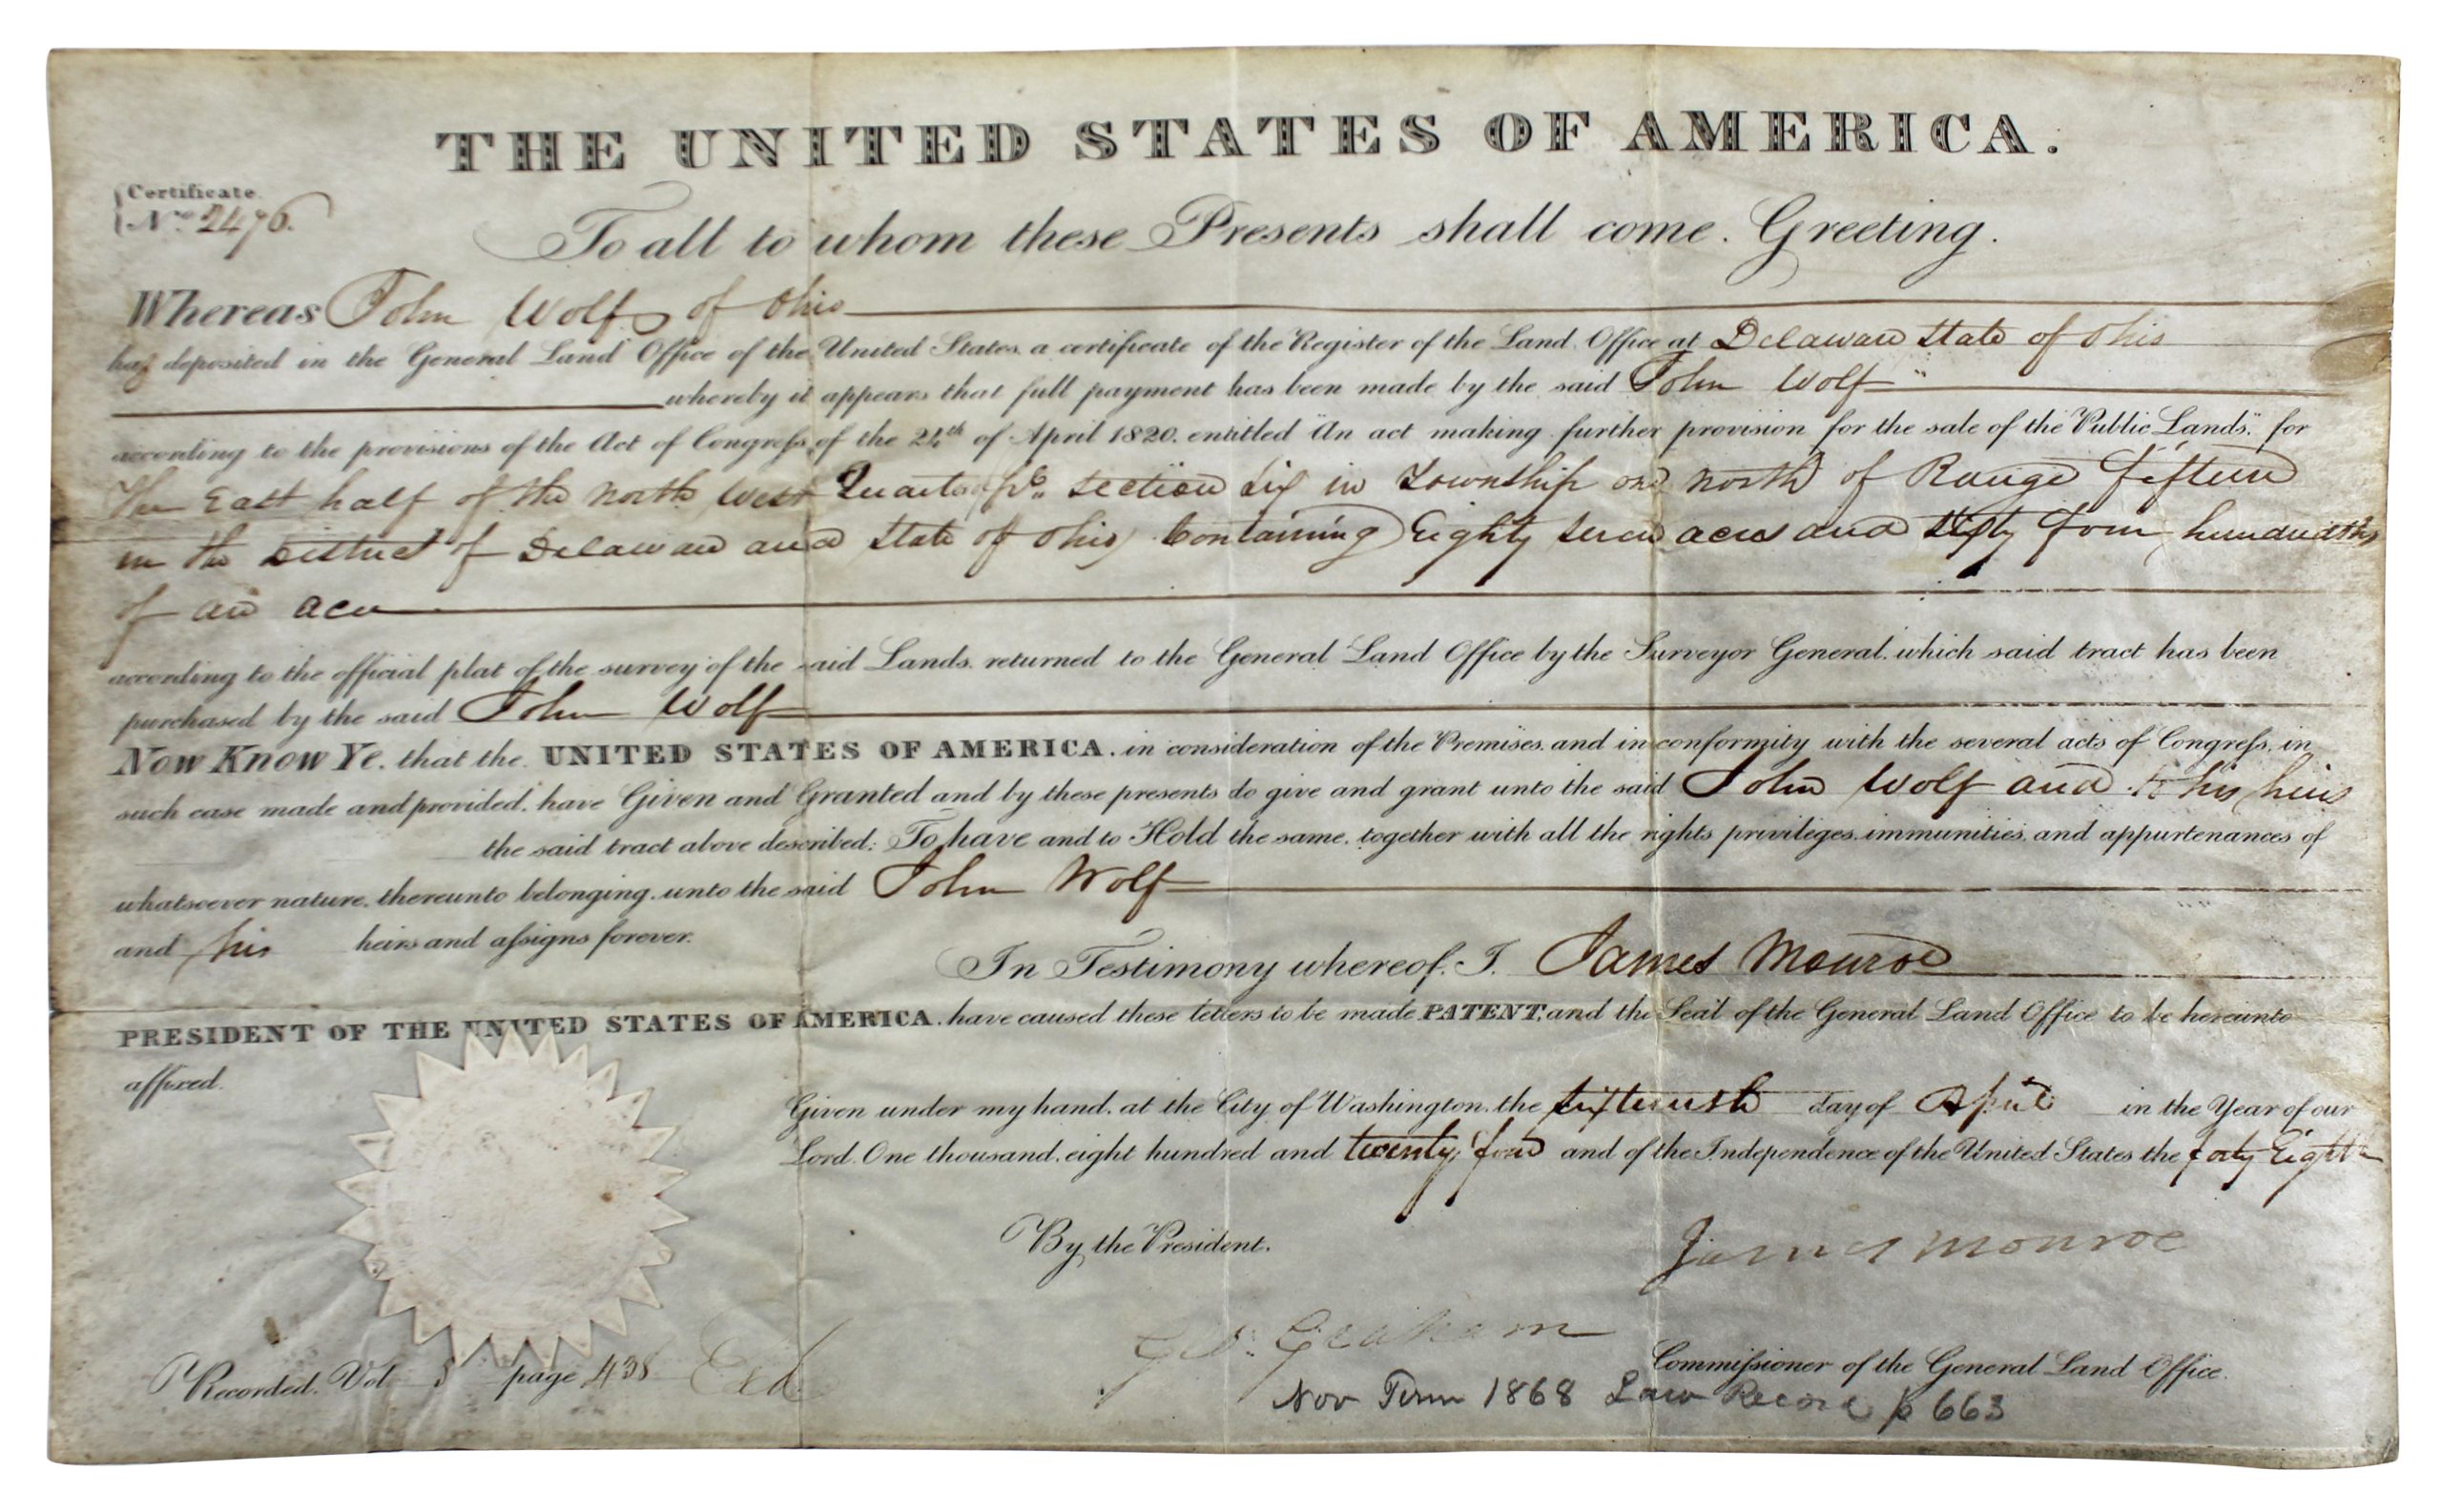 THE UNITED STATES OF AMERICA.
Certificate
No. 2476.
To all to whom these Presents shall come. Greeting.
Whereas John Wolf of Ohio
has deposited in the General Land Office of the United States a certificate of the Register of the Land Office at Delaware State of Ohio
whereby it appears that full payment has been made by the said John Wolf
according to the provisions of the Act of Congress of the 24th of April 1820. entitled "An act making further provision for the sale of the Public Lands." for
The East half of the North West Quarter of section six in Township one north of Range fifteen
in the District of Delaware and State of Ohio Containing Eighty seven acres and sixty four hundredths
of an acre
according to the official plat of the survey of the said Lands. returned to the General Land Office by the Surveyor General. which said tract has been
purchased by the said John Wolf
Now Know Ye. that the UNITED STATES OF AMERICA. in consideration of the Premises. and in conformity with the several acts of Congress. in
such case made and provided. have Given and Granted and by these presents do give and grant unto the said John Wolf and to his heirs
the said tract above described: To have and to Hold the same. together with all the rights privileges. immunities. and appurtenances of
whatsoever nature. thereunto belonging. unto the said John Wolf
and his heirs and assigns forever.
In Testimony whereof. I. James Monroe
PRESIDENT OF THE UNITED STATES OF AMERICA. have caused these letters to be made PATENT, and the Seal of the General Land Office to be hereunto
affixed.
Given under my hand. at the City of Washington. the day of April in the Year of our
Lord. One thousand. eight hundred and twenty four and of the Independence of the United States the forty Eighth
By the President.
James Monroe
Geo: Graham
Commissioner of the General Land Office.
Recorded. Vol 5 page 438 Exd
Nov Term 1868 Law Record p 663